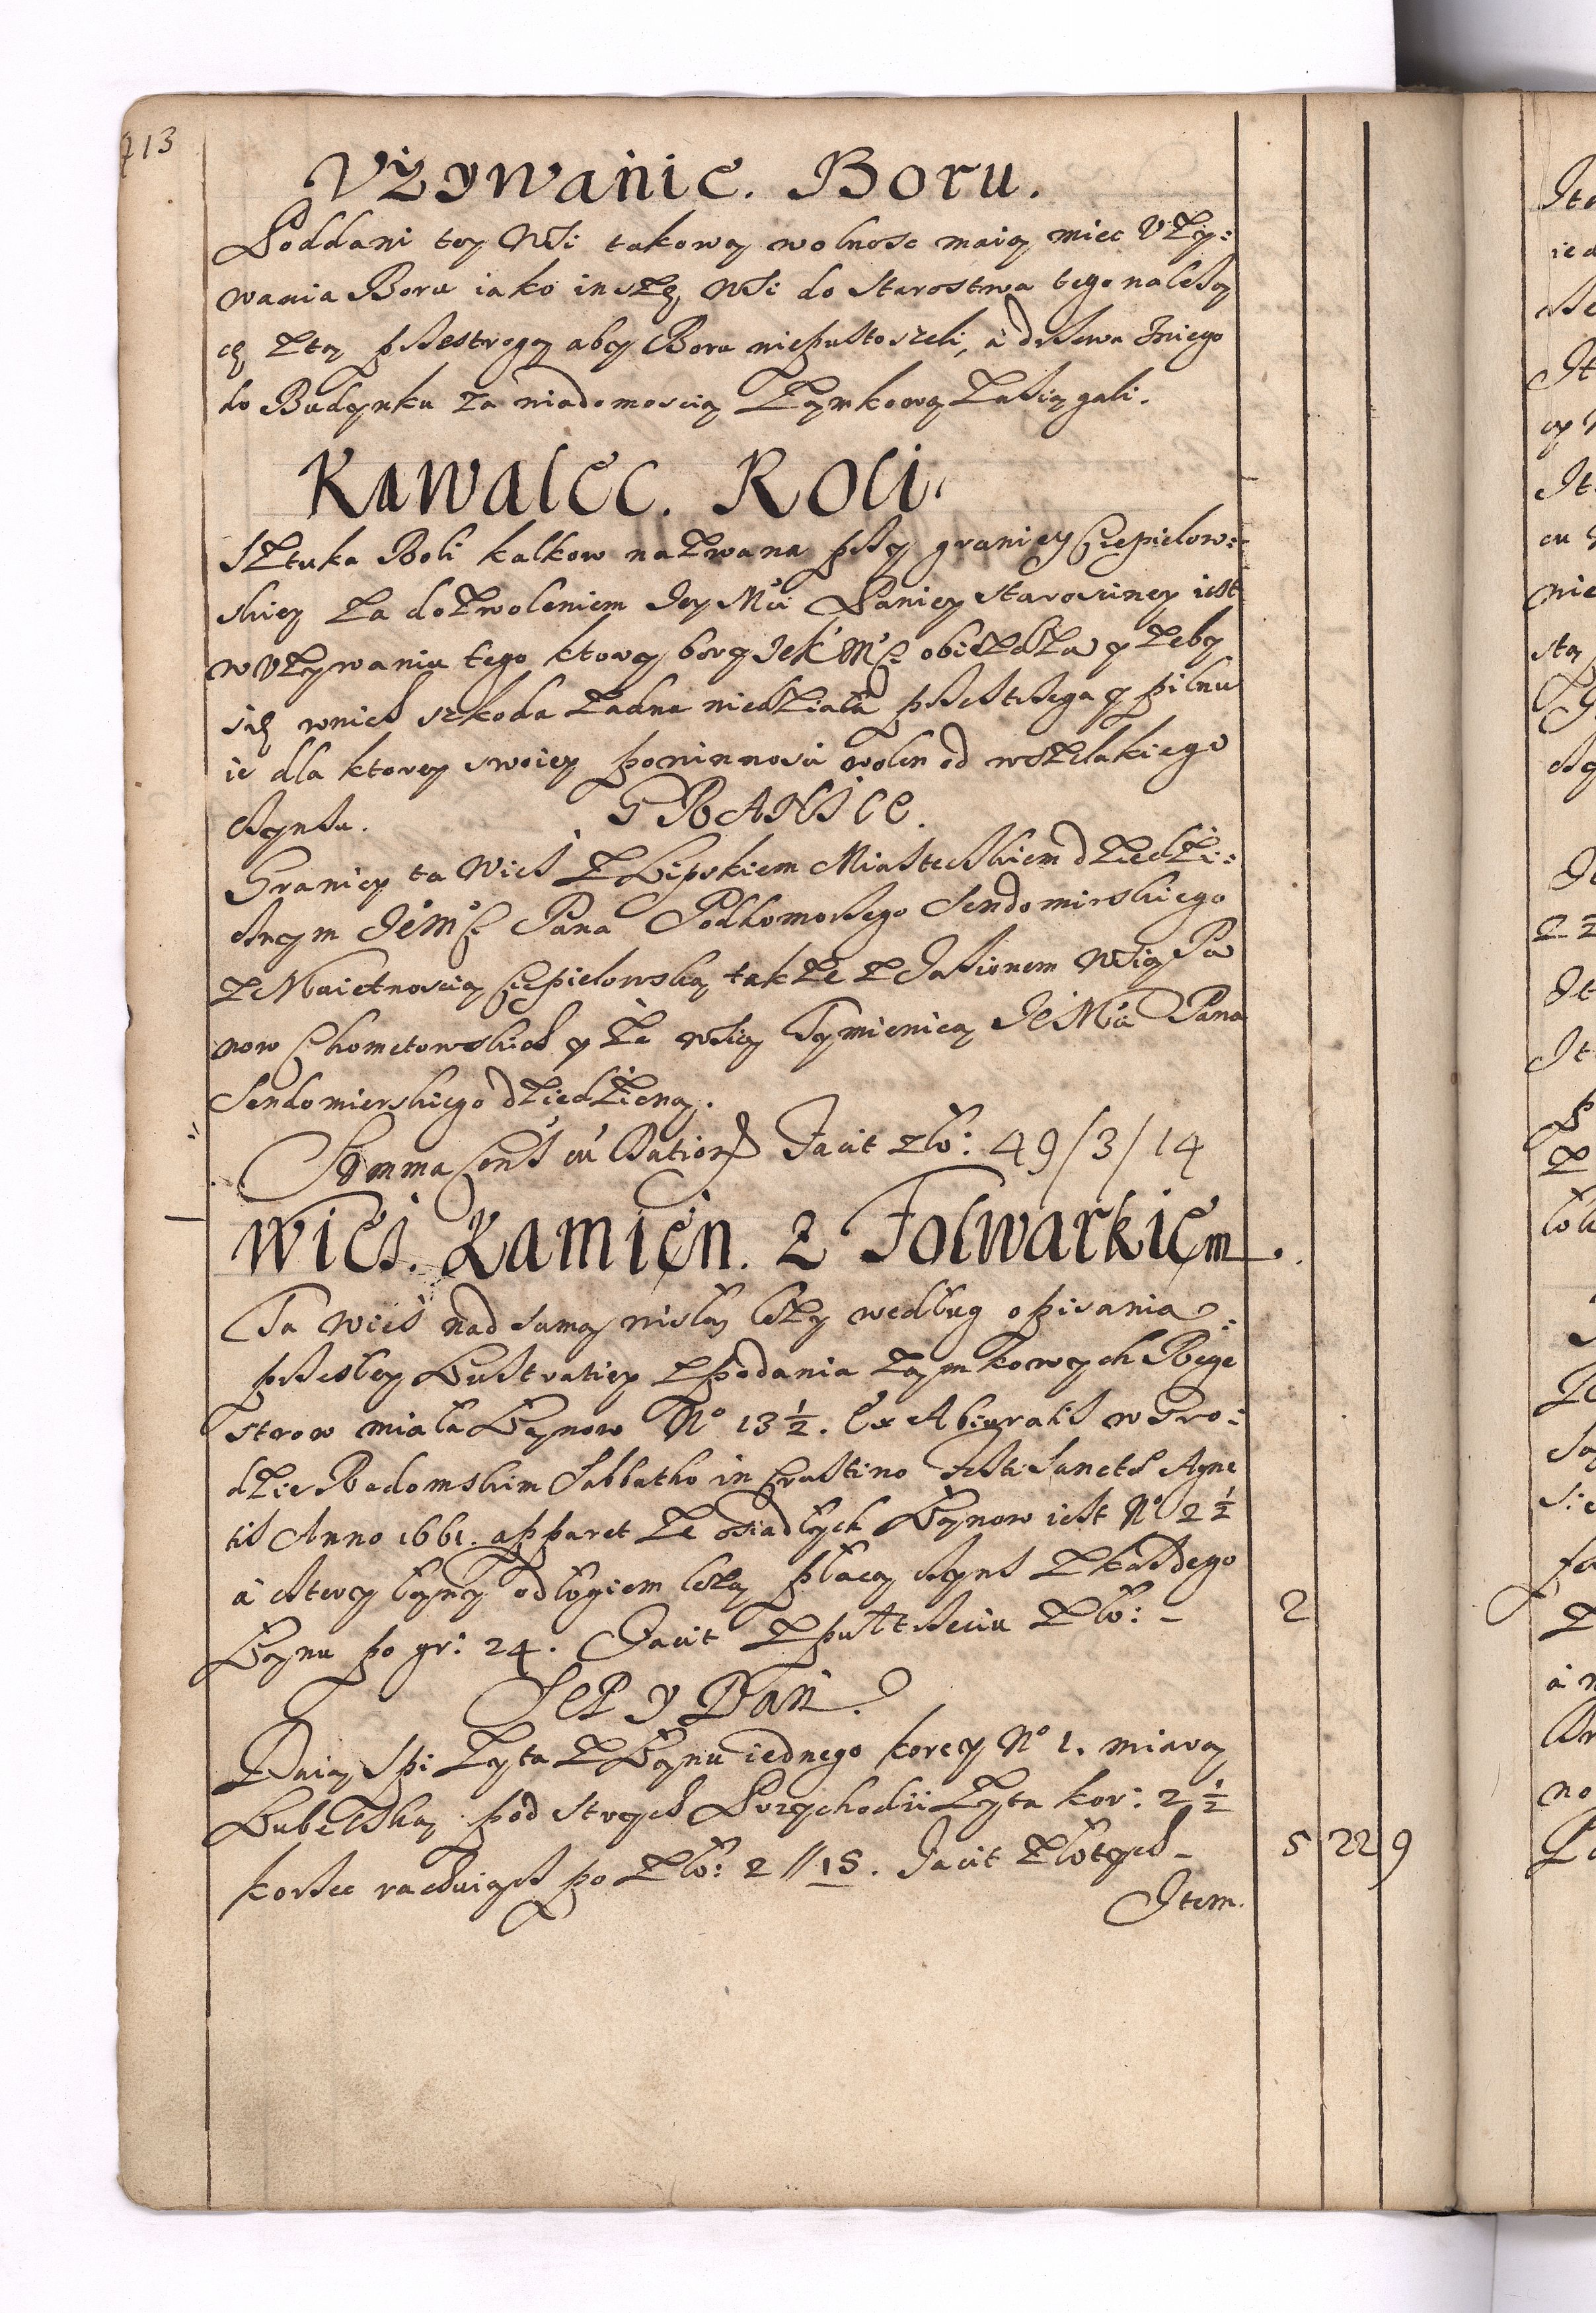 713
Vżywanie. Boru.
Poddani tey Wsi takową wolnosc maią miec Vży:
wania Boru iako inszę Wsi do Starostwa tego nalezą
cę z tą przestrogą aby Boru niepustoszeli, a drzewa zniego
do Budynku za wiadomoscią Zamkową zasiągali.
Kawalec. Roli.
Sztuka Roli kalkow nazwana przy granicy Ciepielow:
skiey za dozwoleniem Jey Mci Paniey Starosciney iest
w vżywaniu tego ktory bory JeK Mci obiezdza y żeby
się wnich szkoda zadna niedziała przestrzega y pilnu
ie dla ktorey swoiey powinnosci wolen od wszelakiego
czynszu. GRANICE.
Graniczy ta Wies z Lipskiem Miasteczkiem dziedzi:
cznym Jemci Pana Podkomorzego Sendomirskiego
z Maietnoscią Ciepielowską także z Jasiencem Wsią Pa
now Chometowskich y ze wsią Tymienicą Je Mci Pana
Sendomierskiego dziedziczną.
Summa Cens cu Dation Facit zło: 49/3/14
Wies. Kamien. z Folwarkiem.
Ta Wies nad samą wisłą leży według opisania
przeszłey Lustratiey z podania Zamkowych Rege
strow miała Łanow No 13 ½. Ex Abiuratis w Gro:
dzie Radomskim Sabbatho in Crastino Festi Sanctæ Agne
tis Anno 1661. apparet że osiadłych Łanow iest No 2 ½
a cztery łany odłogiem leżą płacą czynsz z każdego
Łanu po gr: 24. Facit z puł trzecia zło: - 2
SEP Y Dań.
Daią Spi żyta z Łanu iednego korcy No 1. miarą
Lubelską pod strych Przychodzi żyta kor: 2 ½
korzec rachuiąc po zło: 2 // 15. Facit złotych - 5 22 9
Item.